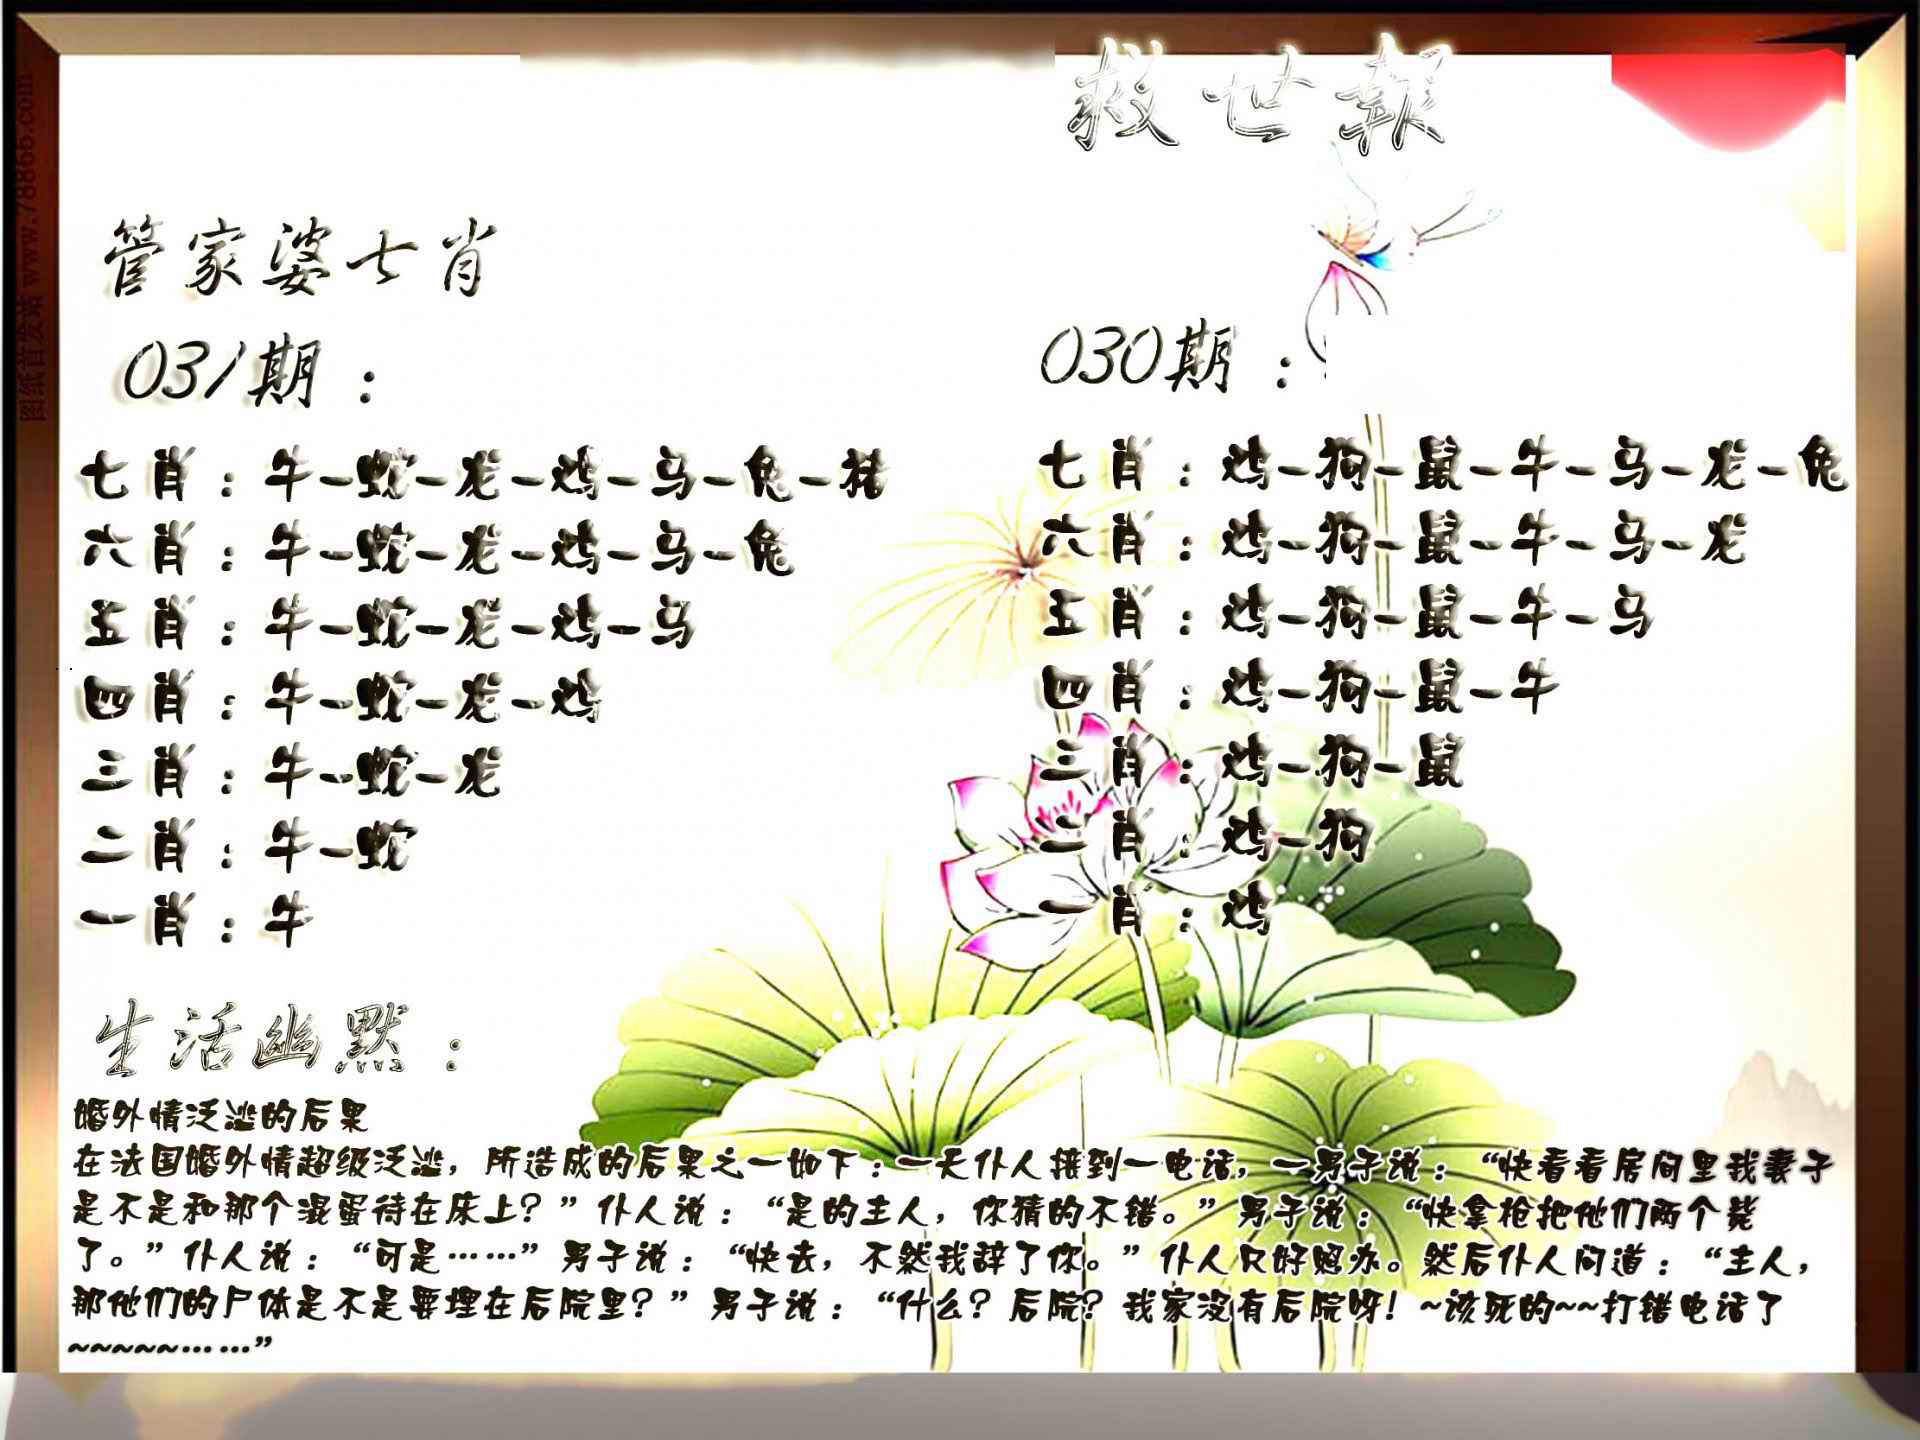 救世報
管家婆七肖
031期：
七肖：牛-蛇-龙-鸡-马-兔-猪
六肖：牛-蛇-龙-鸡-马-兔
五肖：牛-蛇-龙-鸡-马
四肖：牛-蛇-龙-鸡
三肖：牛-蛇-龙
二肖：牛-蛇
一肖：牛
030期：
七肖：鸡-狗-鼠-牛-马-龙-兔
六肖：鸡-狗-鼠-牛-马-龙
五肖：鸡-狗-鼠-牛-马
四肖：鸡-狗-鼠-牛
三肖：鸡-狗-鼠
二肖：鸡-狗
一肖：鸡
生活幽默：
婚外情泛滥的后果
在法国婚外情超级泛滥，所造成的后果之一如下：一天仆人接到一电话，一男子说：“快看看房间里我妻子
是不是和那个混蛋待在床上？”仆人说：“是的主人，你猜的不错。”男子说：“快拿枪把他们两个毙
了。”仆人说：“可是……”男子说：“快去，不然我辞了你。”仆人只好照办。然后仆人问道：“主人，
那他们的尸体是不是要埋在后院里？”男子说：“什么？后院？我家没有后院呀！~该死的~~打错电话了
~~~~~~……”
图纸首发站 www.78866.com